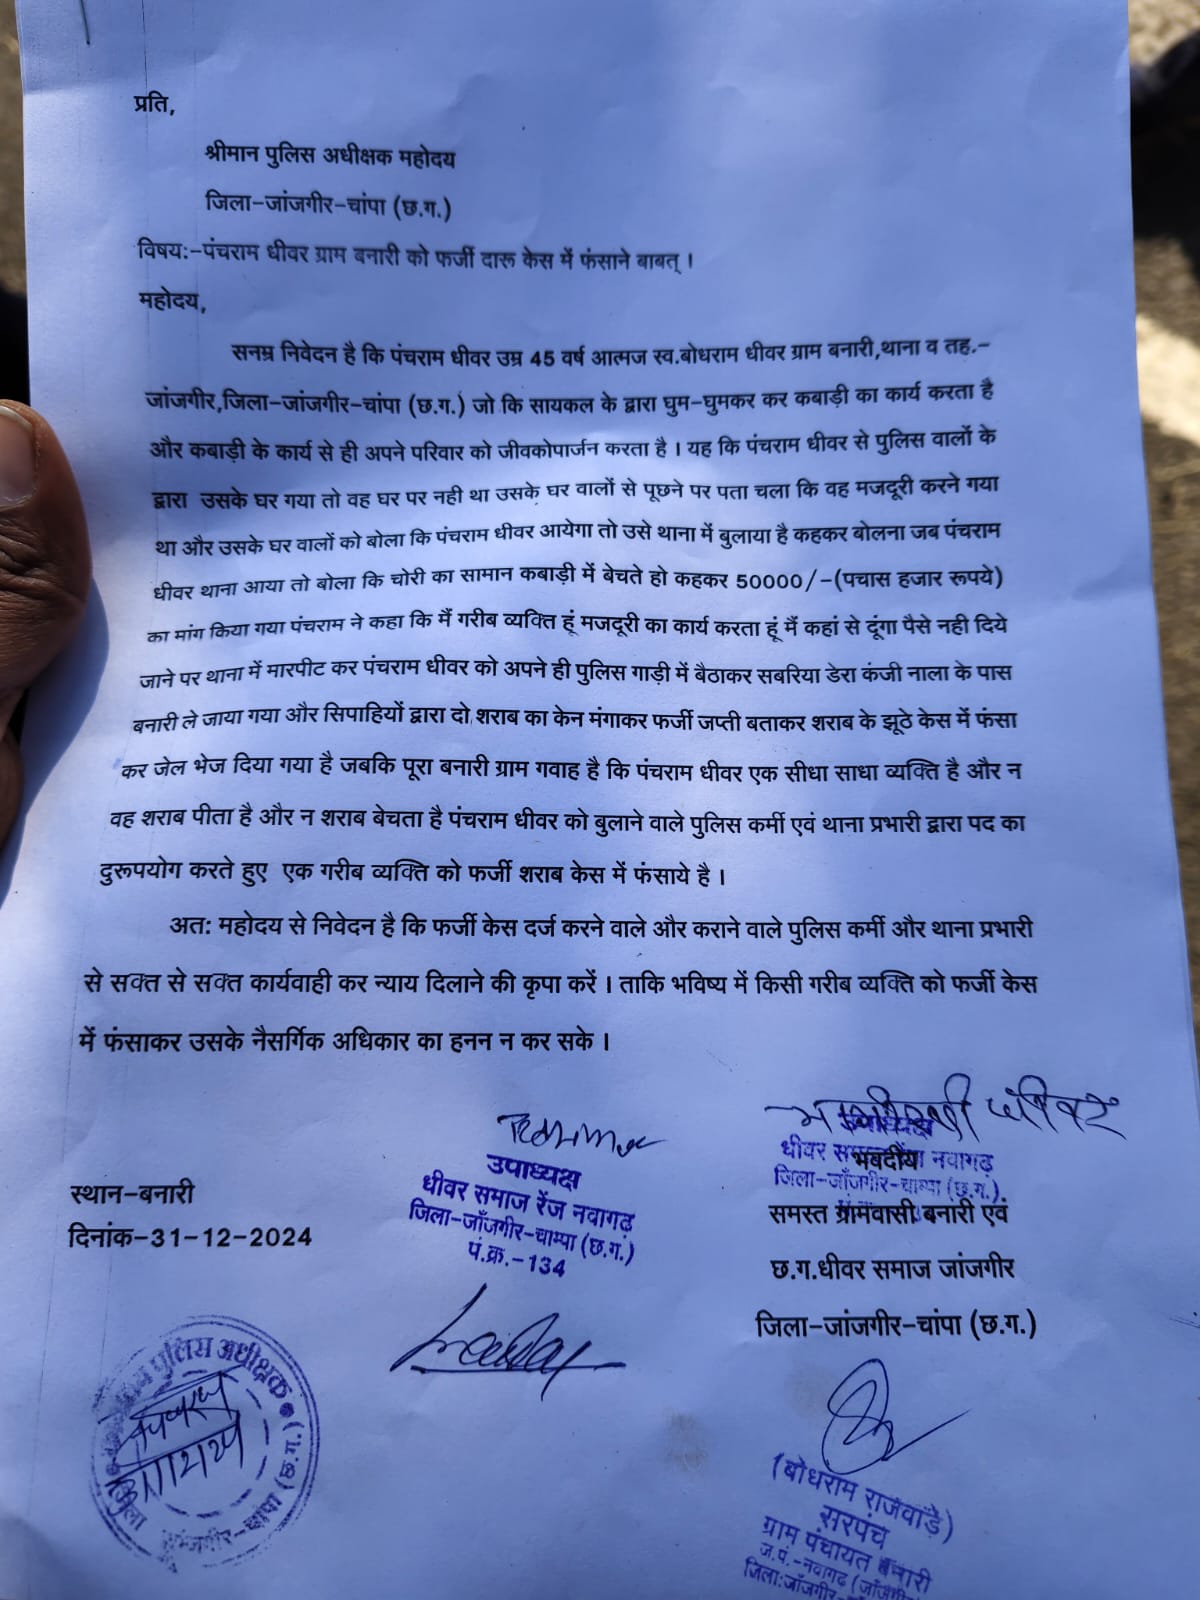 प्रति,
श्रीमान पुलिस अधीक्षक महोदय
जिला-जांजगीर-चांपा (छ.ग.)
विषय:-पंचराम धीवर ग्राम बनारी को फर्जी दारू केस में फंसाने बाबत् ।
महोदय,
सनम्र निवेदन है कि पंचराम धीवर उम्र 45 वर्ष आत्मज स्व.बोधराम धीवर ग्राम बनारी,थाना व तह.-
जांजगीर,जिला-जांजगीर-चांपा (छ.ग.) जो कि सायकल के द्वारा घुम-घुमकर कर कबाड़ी का कार्य करता है
और कबाड़ी के कार्य से ही अपने परिवार को जीवकोपार्जन करता है । यह कि पंचराम धीवर से पुलिस वालों के
द्वारा उसके घर गया तो वह घर पर नही था उसके घर वालों से पूछने पर पता चला कि वह मजदूरी करने गया
था और उसके घर वालों को बोला कि पंचराम धीवर आयेगा तो उसे थाना में बुलाया है कहकर बोलना जब पंचराम
धीवर थाना आया तो बोला कि चोरी का सामान कबाड़ी में बेचते हो कहकर 50000/-(पचास हजार रूपये)
का मांग किया गया पंचराम ने कहा कि मैं गरीब व्यक्ति हूं मजदूरी का कार्य करता हूं मैं कहां से दूंगा पैसे नही दिये
जाने पर थाना में मारपीट कर पंचराम धीवर को अपने ही पुलिस गाड़ी में बैठाकर सबरिया डेरा कंजी नाला के पास
बनारी ले जाया गया और सिपाहियों द्वारा दो शराब का केन मंगाकर फर्जी जप्ती बताकर शराब के झूठे केस में फंसा
कर जेल भेज दिया गया है जबकि पूरा बनारी ग्राम गवाह है कि पंचराम धीवर एक सीधा साधा व्यक्ति है और न
वह शराब पीता है और न शराब बेचता है पंचराम धीवर को बुलाने वाले पुलिस कर्मी एवं थाना प्रभारी द्वारा पद का
दुरूपयोग करते हुए एक गरीब व्यक्ति को फर्जी शराब केस में फंसाये है ।
अत: महोदय से निवेदन है कि फर्जी केस दर्ज करने वाले और कराने वाले पुलिस कर्मी और थाना प्रभारी
से सक्त से सक्त कार्यवाही कर न्याय दिलाने की कृपा करें । ताकि भविष्य में किसी गरीब व्यक्ति को फर्जी केस
में फंसाकर उसके नैसर्गिक अधिकार का हनन न कर सके ।
धीवर
धीवर समाज नवागढ़
जिला-जाँजगीर-चाम्पा (छ.ग.)
भवदीय
समस्त ग्रामवासी बनारी एवं
छ.ग.धीवर समाज जांजगीर
जिला-जांजगीर-चांपा (छ.ग.)
उपाध्यक्ष
धीवर समाज रेंज नवागढ़
जिला-जाँजगीर-चाम्पा (छ.ग.)
पं.क्र.-134
स्थान-बनारी
दिनांक-31-12-2024
पुलिस अधीक्षक
जिला जांजगीर-चांपा (छ.ग.)
31/12/24
(बोधराम राजवाड़े)
सरपंच
ग्राम पंचायत बनारी
ज.पं.-नवागढ़ (जाँजगीर)
जिला:जाँजगीर-